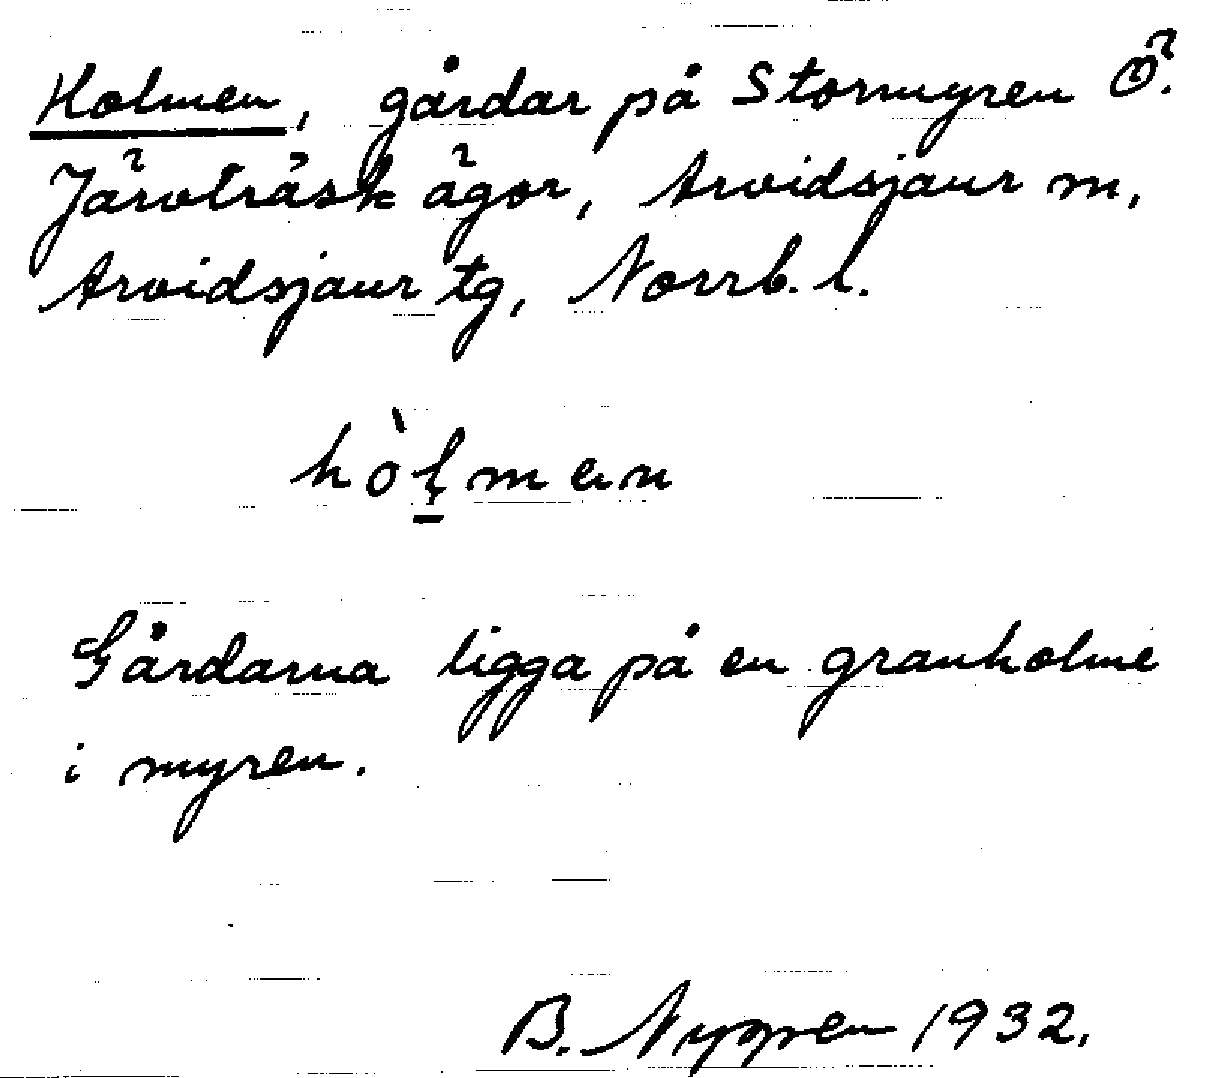 Holmen, gårdar på Stormyren Ö.
Järvträsk ägor, Arvidsjaur m,
Arvidsjaur tg, Norrb. l.
hòḷmen
Gårdarna ligga på en granholme
i myren.
B. Nygren 1932.